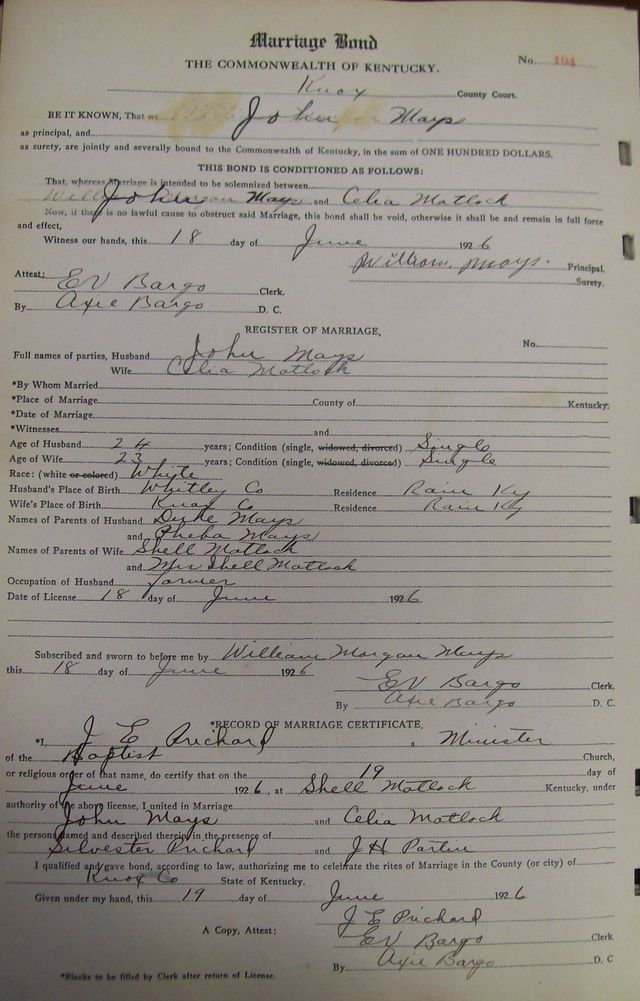 Marriage Bond
THE COMMONWEALTH OF KENTUCKY. No. 104
Knox County Court.
BE IT KNOWN, That we John Mays
as principal, and
as surety, are jointly and severally bound to the Commonwealth of Kentucky, in the sum of ONE HUNDRED DOLLARS.
THIS BOND IS CONDITIONED AS FOLLOWS:
That, whereas Marriage is intended to be solemnized between
John Mays and Celia Matlock
Now, if there is no lawful cause to obstruct said Marriage, this bond shall be void, otherwise it shall be and remain in full force
and effect,
Witness our hands, this 18 day of June 1926
William Mays. Principal,
Surety.
Attest: EV Bargo Clerk.
By Axie Bargo D. C.
REGISTER OF MARRIAGE,
Full names of parties, Husband John Mays No.
Wife Celia Matlock
*By Whom Married
*Place of Marriage County of Kentucky.
*Date of Marriage
*Witnesses and
Age of Husband 24 years; Condition (single, widowed, divorced) Single
Age of Wife 23 years; Condition (single, widowed, divorced) Single
Race: (white or colored) White
Husband's Place of Birth Whitley Co Residence Rain Ky
Wife's Place of Birth Knox Co Residence Rain Ky
Names of Parents of Husband Mays
and Pheba Mays
Names of Parents of Wife Shell Matlock
and Mrs Shell Matlock
Occupation of Husband farmer
Date of License 18 day of June 1926
Subscribed and sworn to before me by William Morgan Mays
this 18 day of June 1926
EV Bargo Clerk.
By Axie Bargo D. C.
*RECORD OF MARRIAGE CERTIFICATE.
*I, J E Prichard a Minister
of the Baptist Church,
or religious order of that name, do certify that on the 19 day of
June 1926, at Shell Matlock Kentucky, under
authority of the above license, I united in Marriage
John Mays and Celia Matlock
the persons named and described therein in the presence of
Silvester Prichard and J H Partin
I qualified and gave bond, according to law, authorizing me to celebrate the rites of Marriage in the County (or city) of
Knox Co State of Kentucky.
Given under my hand, this 19 day of June 1926
J E Prichard
A Copy, Attest: EV Bargo Clerk
By Axie Bargo D. C
*Blanks to be filled by Clerk after return of License.